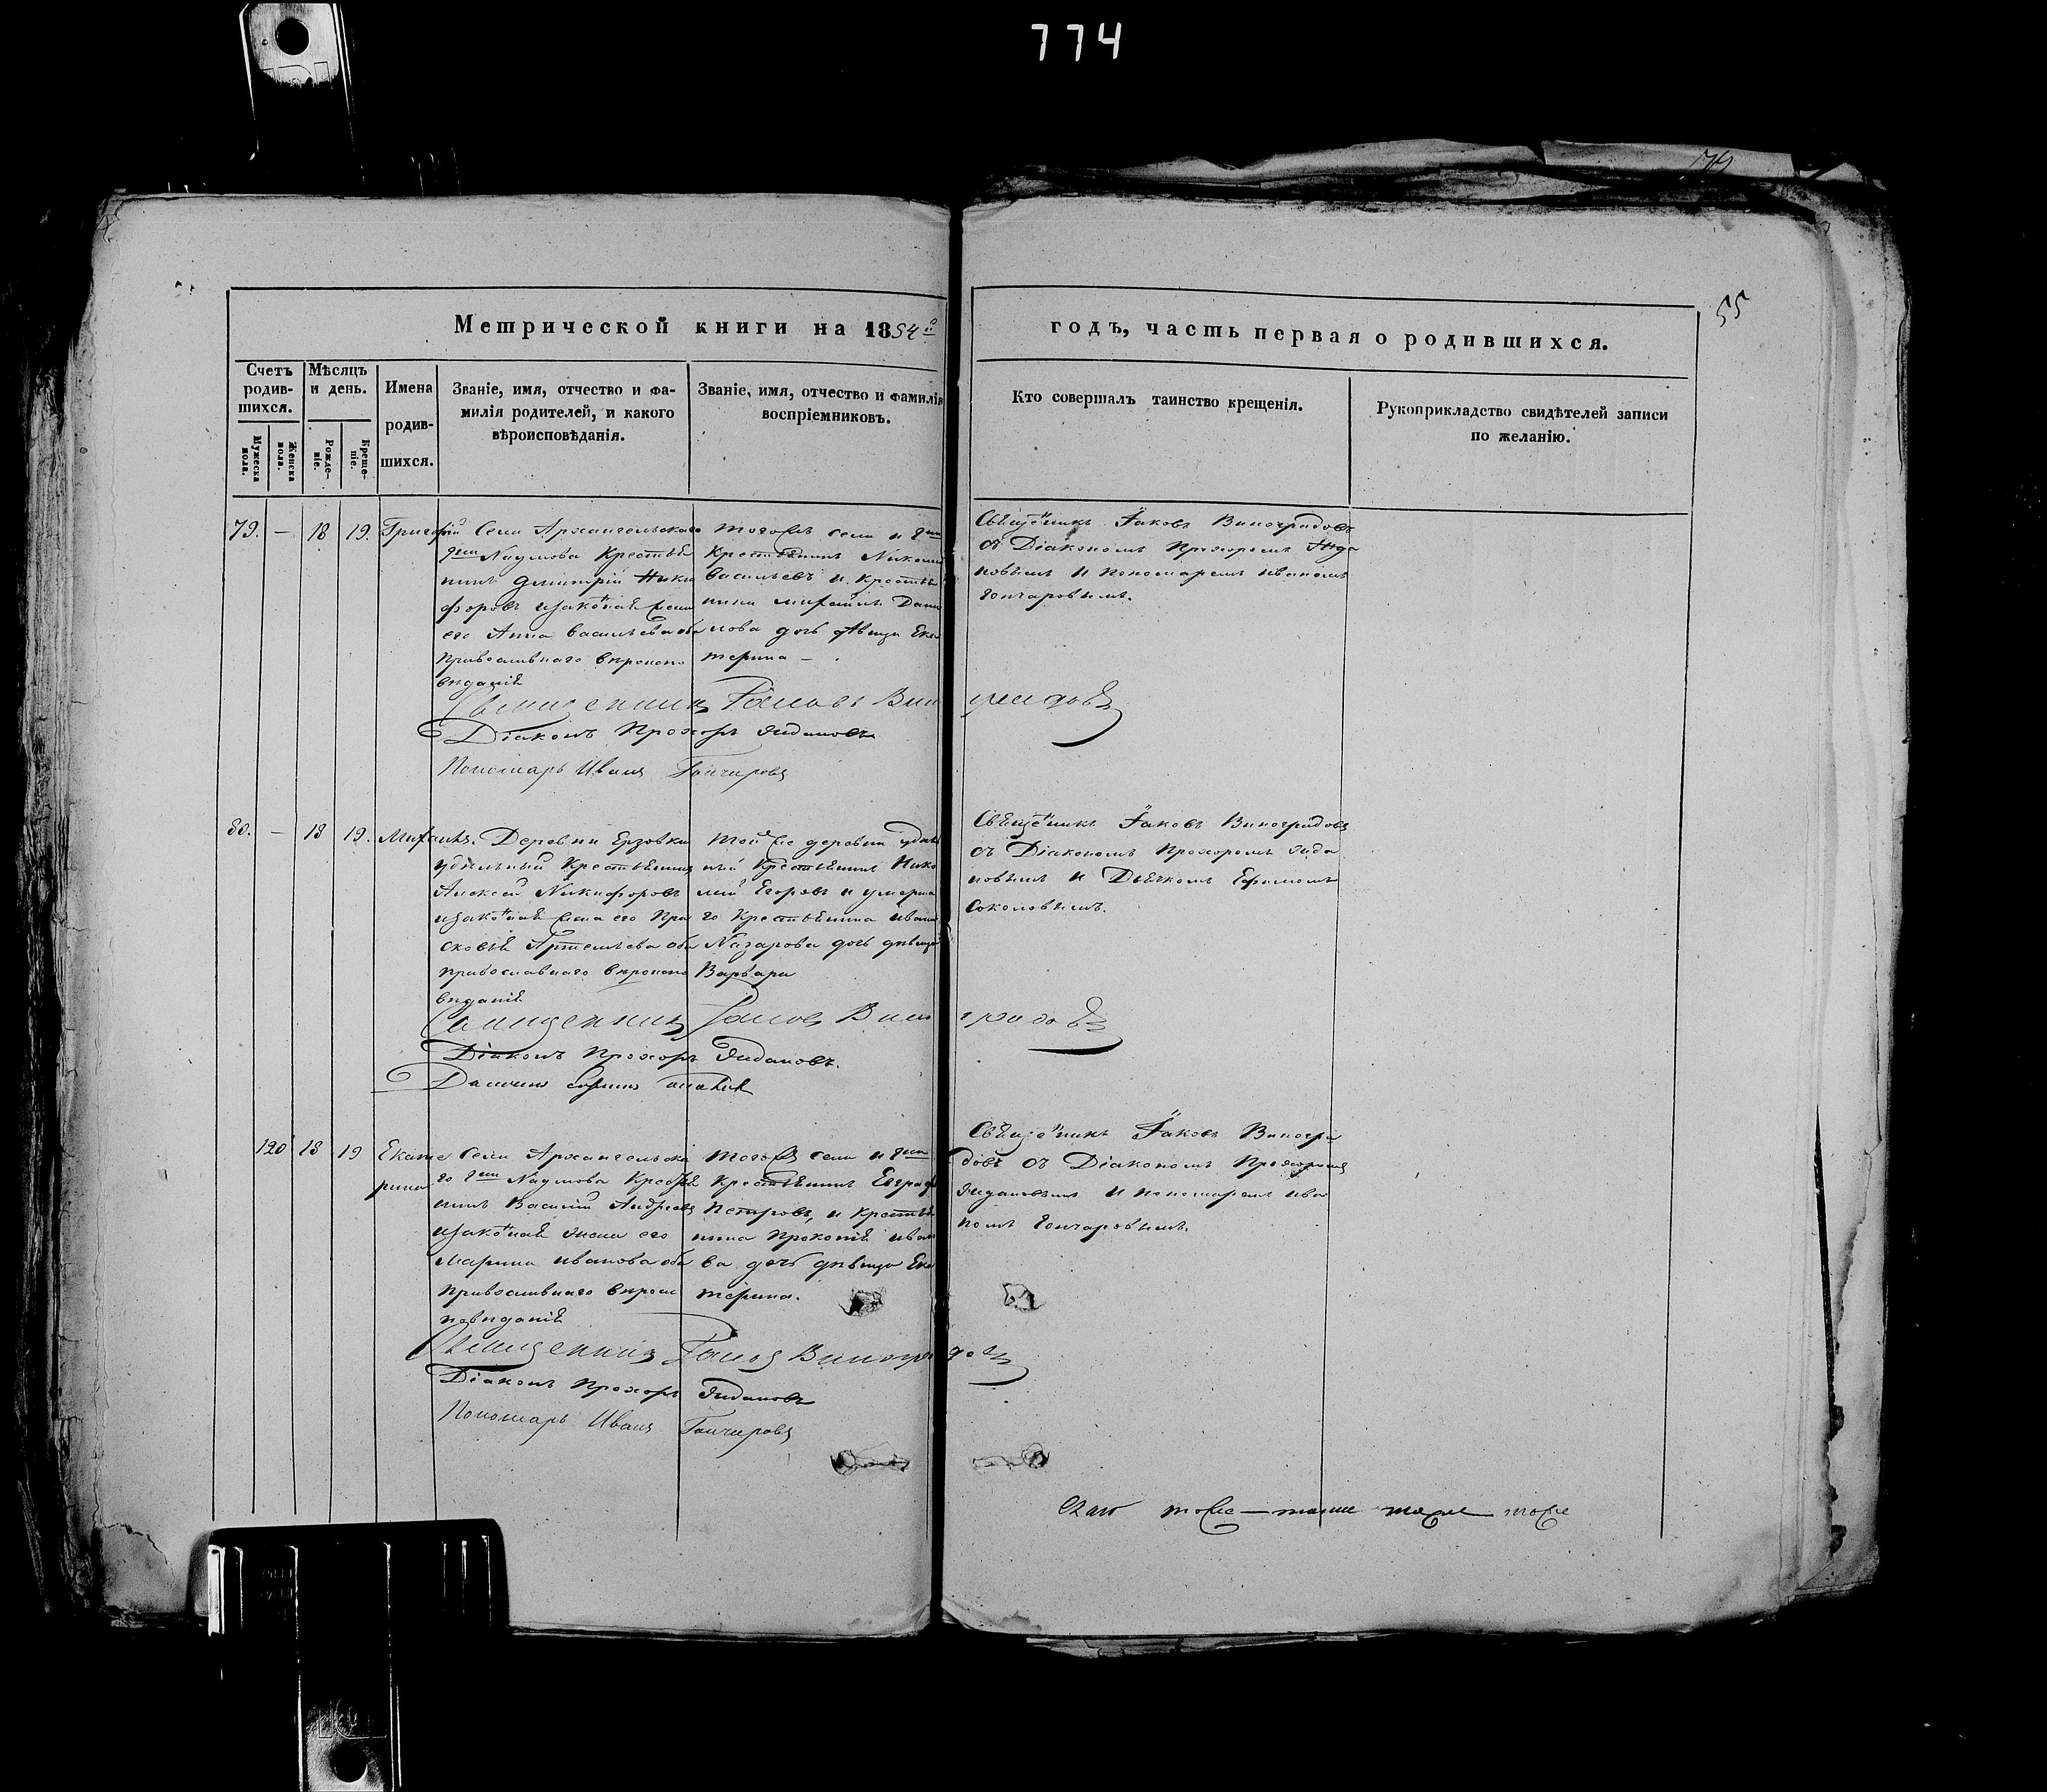 774
79
55
Метрической книги на 1854й
годъ, часть первая о родившихся.
Счетъ родив-шихся.
Мужеска пола.
Женска пола.
Мѣсяцъ и день.
Рожде-ніе.
Креще-ніе.
Имена родив-шихся.
Званіе, имя, отчество и фа-
милія родителей, и какого
вѣроисповѣданія.
Званіе, имя, отчество и фамилія
воспріемниковъ.
Кто совершалъ таинство крещенія.
Рукоприкладство свидѣтелей записи
по желанію.
79. — 18 19. Григорій
Села Архангельскаго
Наумова Крестья
нинъ Димитрій Ники
форовъ изаконная жена
его Анна Васильева оба
Православнаго вѣроиспо
вѣданія
тогожъ села и
Крестьянинъ Николай
Васильевъ и крестья
нина Михаила Дани
лова дочь дѣвица Ека
терина —
Священникъ Іаковъ Виноградовъ
съ Діакономъ Прохоромъ
новымъ и пономаремъ Иваномъ
Гончаровымъ.
Священникъ Іаковъ Виноградовъ
Діаконъ Прохоръ
Пономарь Иванъ Гончаровъ
80. — 18 19. Михаилъ.
Деревни Ерзовки
удѣльный Крестьянинъ
Алексей Никифоровъ
изаконная жена его Пра
сковья Артемьева оба
православнаго вѣроиспо
вѣданія
той же деревни удѣль
ный Крестьянинъ Нико
лай Егоровъ и умерша
го Крестьянина Ивана
Назарова дочь дѣвица
Варвара
Священникъ Іаковъ Виноградовъ
съ Діакономъ Прохоромъ
новымъ и Дьячкомъ Ефимомъ
Соколовымъ.
Священникъ Іаковъ Виноградовъ
Діаконъ Прохоръ
120 18 19 Екате
рина
Села Архангельска
го Наумова Крестья
нинъ Василій Андреевъ
изаконная жена его
Марина Иванова оба
Православнаго вѣроис
повѣданія
тогожъ села и
Крестьянинъ Евграфъ
Петровъ, и Крестья
нина Прокопія Ивано
ва дочь дѣвица Ека
терина.
Священникъ Іаковъ Виногра
довъ съ Діакономъ Прохоромъ
и пономаремъ Ива
номъ Гончаровымъ.
Священникъ Іаковъ Виноградовъ
Діаконъ Прохоръ
Пономарь Иванъ Гончаровъ